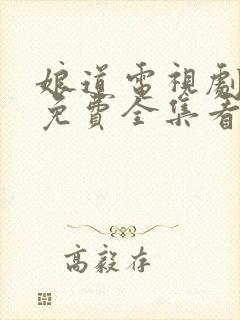 娘道電視劇
免費全集看
高毅存